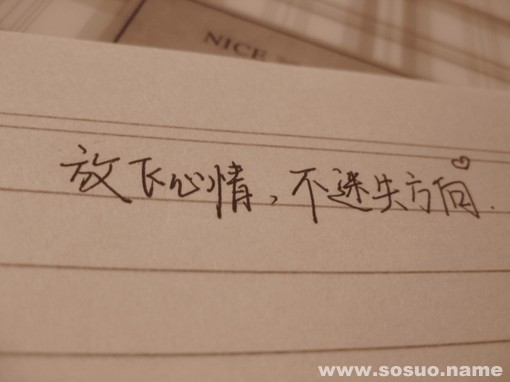 NICE
放飞心情，不迷失方向.
www.sosuo.name